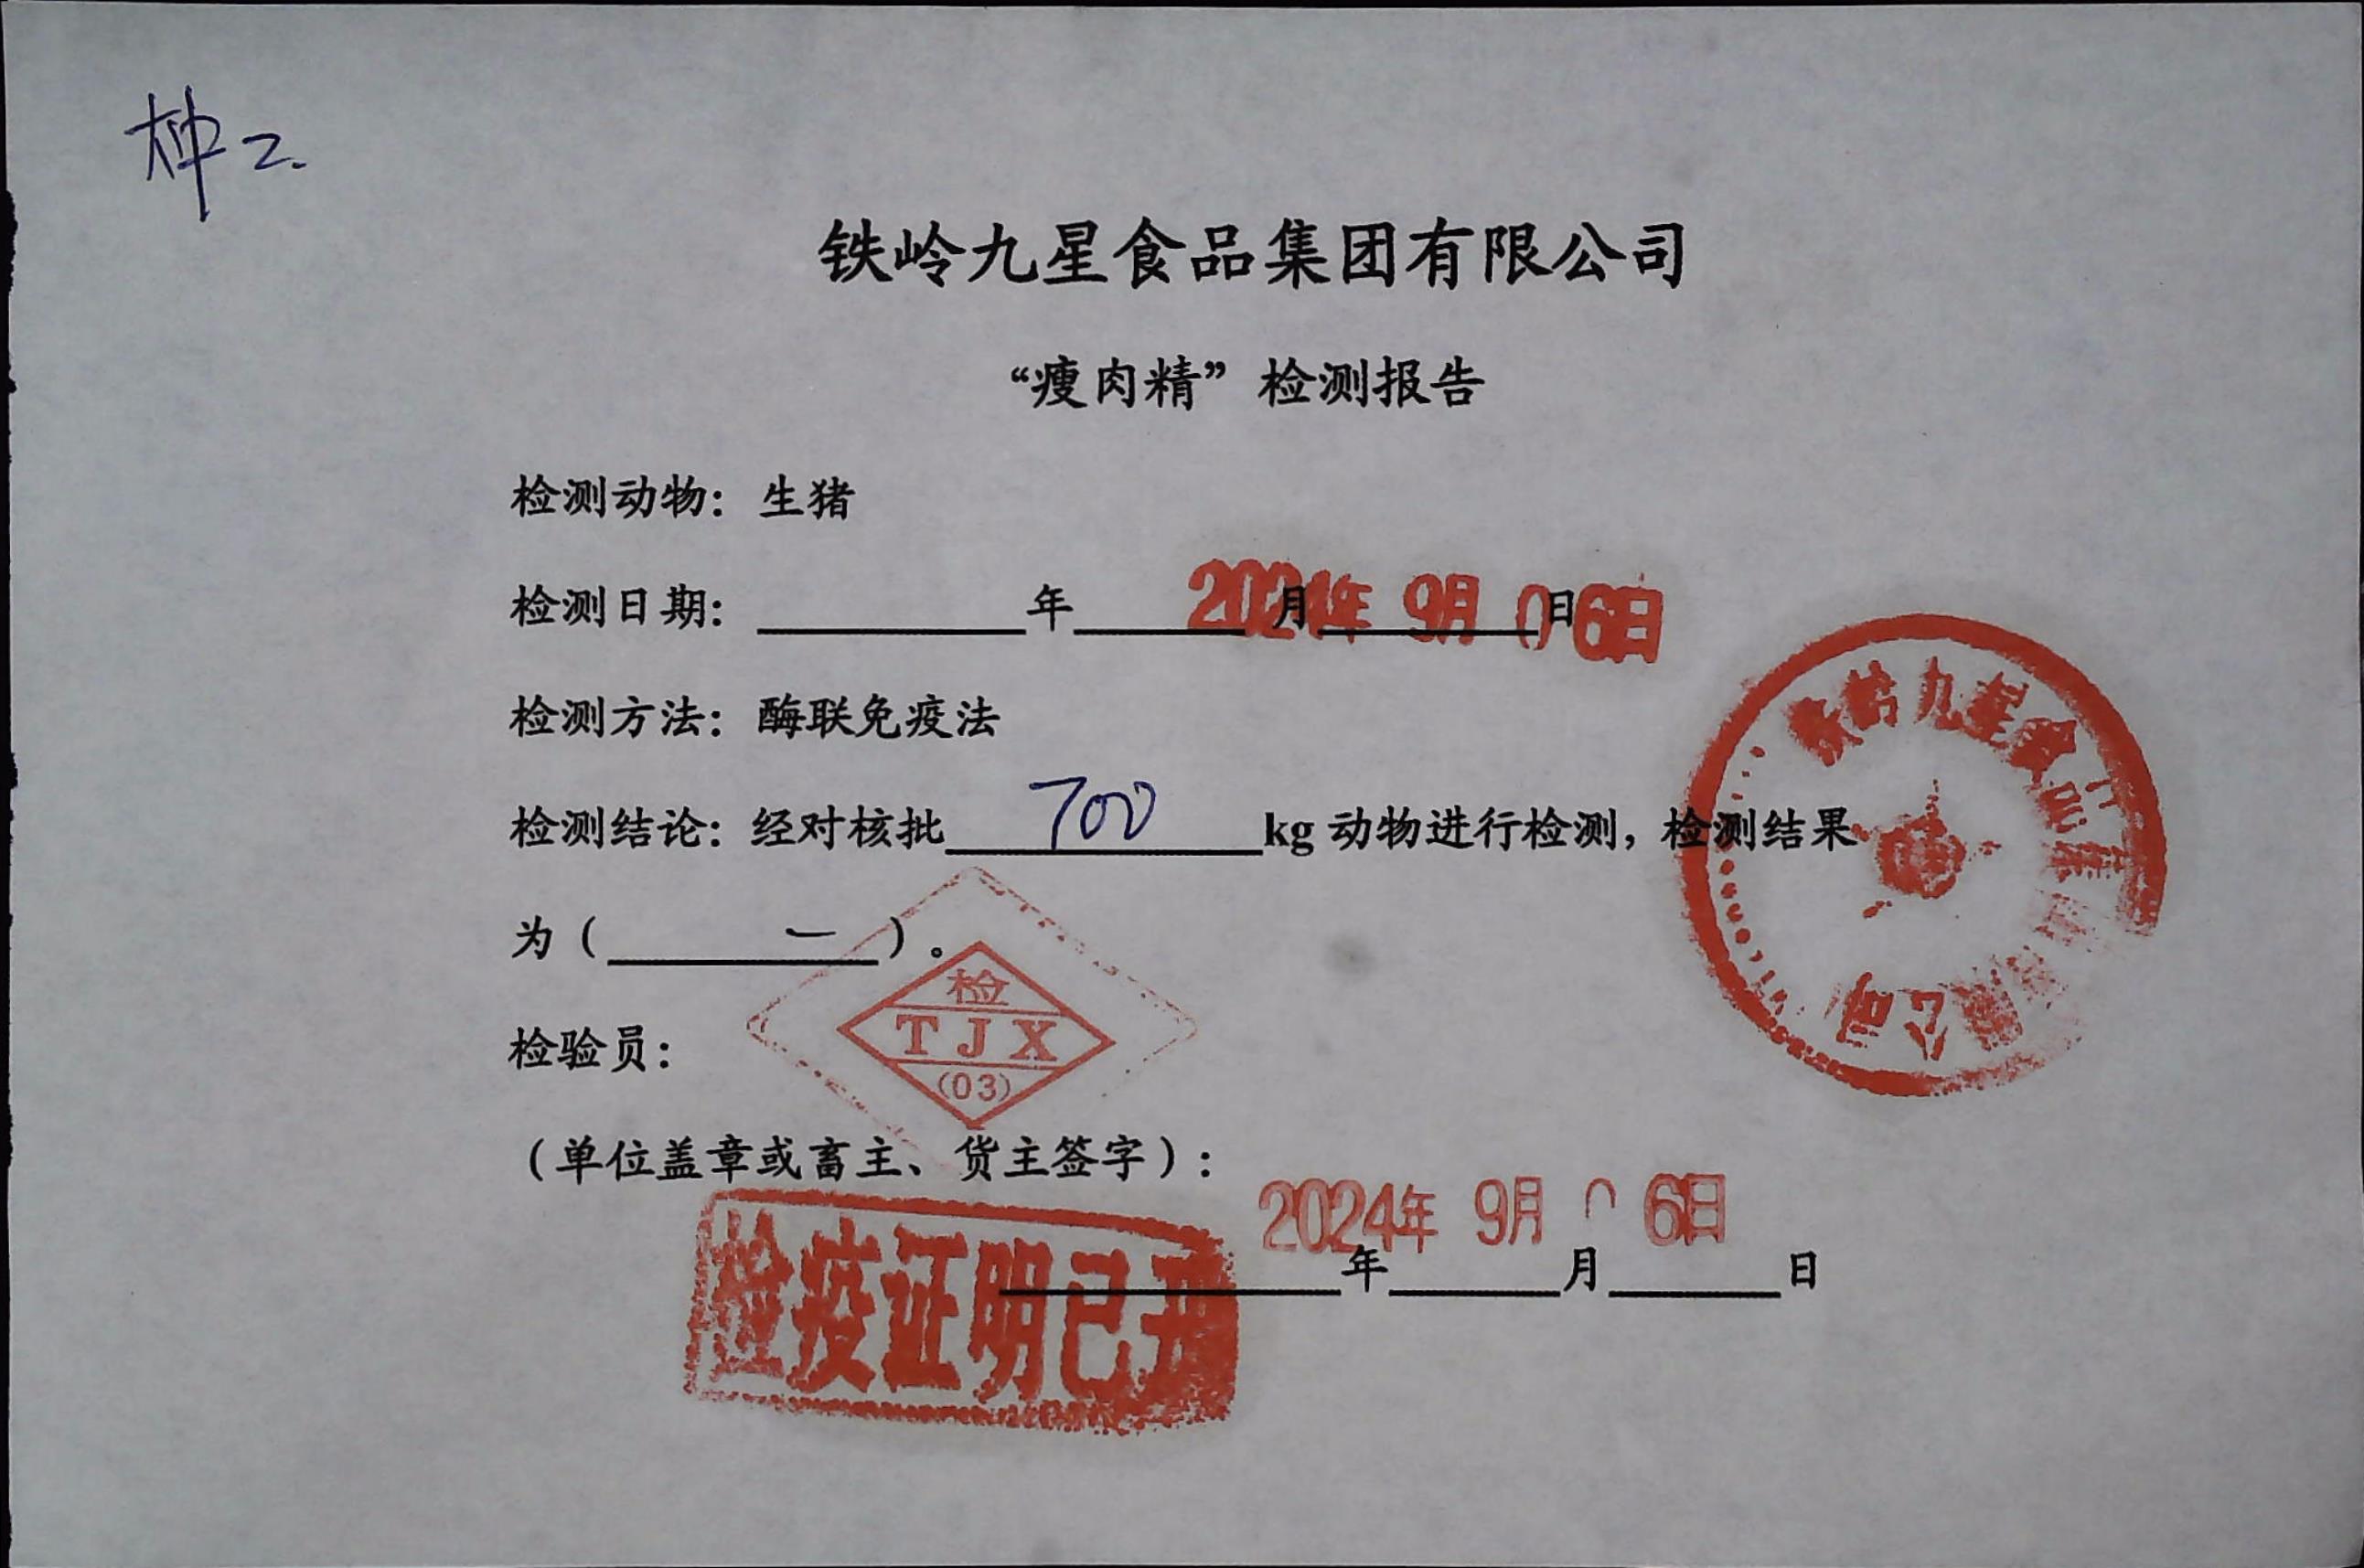 种2.
铁岭九星食品集团有限公司
“瘦肉精”检测报告
检测动物：生猪
检测日期：____年____月____日
2024年 9月 06日
检测方法：酶联免疫法
检测结论：经对核批 700 kg 动物进行检测，检测结果
为（ — ）。
检验员：
检
TJX
(03)
铁岭九星食品集团有限公司
（单位盖章或畜主、货主签字）：
2024年 9月 06日
____年____月____日
检疫证明已